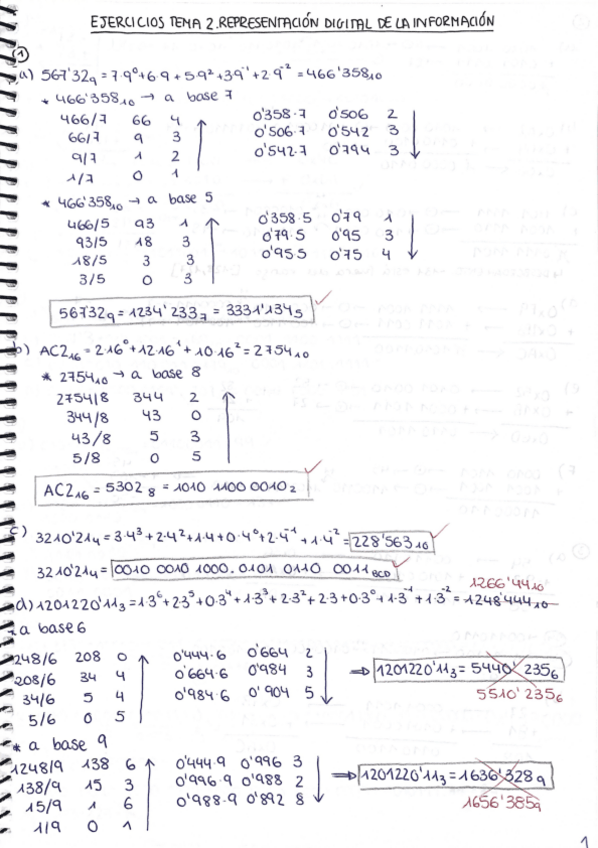 EJERCICIOS TEMA 2. REPRESENTACIÓN DIGITAL DE LA INFORMACIÓN
①
a) 567'32₉ = 7·9⁰+6·9+5·9²+3·9⁻¹+2·9⁻² = 466'358₁₀
* 466'358₁₀ → a base 7
466/7 66 4 0'358·7 0'506 2
66/7 9 3 0'506·7 0'542 3
9/7 1 2 0'542·7 0'794 3
1/7 0 1
* 466'358₁₀ → a base 5
466/5 93 1 0'358·5 0'79 1
93/5 18 3 0'79·5 0'95 3
18/5 3 3 0'95·5 0'75 4
3/5 0 3
567'32₉ = 1234'233₇ = 3331'134₅
b) AC2₁₆ = 2·16⁰+12·16¹+10·16² = 2754₁₀
* 2754₁₀ → a base 8
2754/8 344 2
344/8 43 0
43/8 5 3
5/8 0 5
AC2₁₆ = 5302₈ = 1010 1100 0010₂
c) 3210'21₄ = 3·4³+2·4²+1·4+0·4⁰+2·4⁻¹+1·4⁻² = 228'563₁₀
3210'21₄ = 0010 0010 1000.0101 0110 0011 BCD
1266'44₁₀
d) 1201220'11₃ = 1·3⁶+2·3⁵+0·3⁴+1·3³+2·3²+2·3+0·3⁰+1·3⁻¹+1·3⁻² = 1248'444₁₀
* a base 6
1248/6 208 0 0'444·6 0'664 2
208/6 34 4 0'664·6 0'984 3
34/6 5 4 0'984·6 0'904 5
5/6 0 5
⇒ 1201220'11₃ = 5440'235₆
5510'235₆
* a base 9
1248/9 138 6 0'444·9 0'996 3
138/9 15 3 0'996·9 0'988 2
15/9 1 6 0'988·9 0'892 8
1/9 0 1
⇒ 1201220'11₃ = 1636'328₉
1656'385₉
1